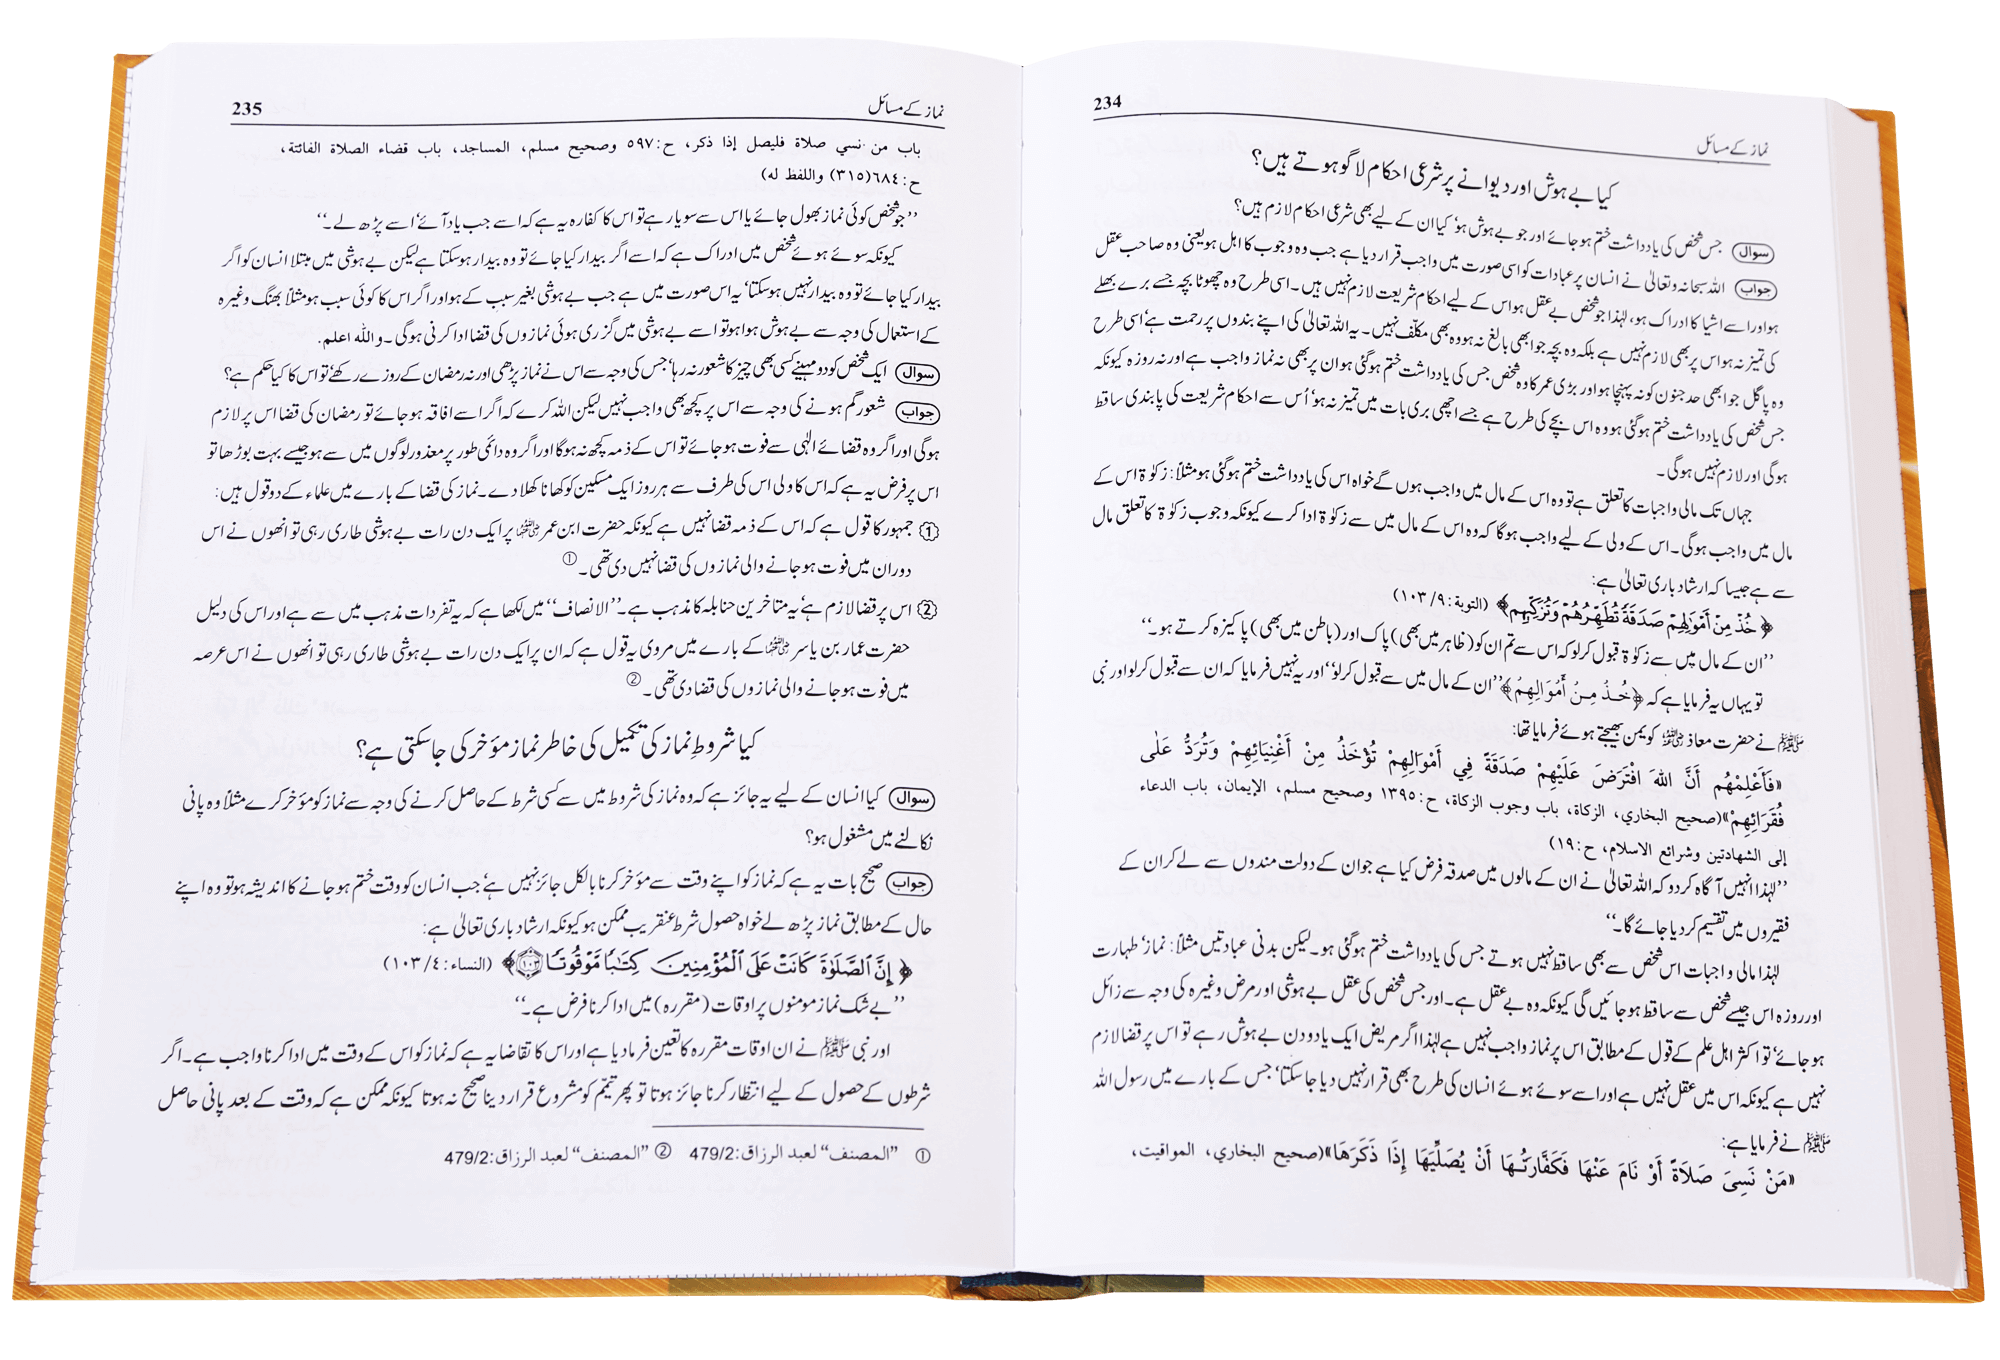 234
نماز کے مسائل
کیا بے ہوش اور دیوانے پر شرعی احکام لاگو ہوتے ہیں؟
سوال جس شخص کی یادداشت ختم ہو جائے اور جو بے ہوش ہو‘ کیا ان کے لیے بھی شرعی احکام لازم ہیں؟
جواب اللہ سبحانہ وتعالیٰ نے انسان پر عبادات کو اسی صورت میں واجب قرار دیا ہے جب وہ وجوب کا اہل ہو یعنی وہ صاحب عقل
ہو اور اسے اشیا کا ادراک ہو، لہٰذا جو شخص بے عقل ہو اس کے لیے احکام شریعت لازم نہیں ہیں۔ اسی طرح وہ چھوٹا بچہ جسے برے بھلے
کی تمیز نہ ہو اس پر بھی لازم نہیں ہے بلکہ وہ بچہ جو ابھی بالغ نہ ہو وہ بھی مکلّف نہیں۔ یہ اللہ تعالیٰ کی اپنے بندوں پر رحمت ہے‘ اسی طرح
وہ پاگل جو ابھی حد جنون کو نہ پہنچا ہو اور بڑی عمر کا وہ شخص جس کی یادداشت ختم ہو گئی ہو ان پر بھی نہ نماز واجب ہے اور نہ روزہ کیونکہ
جس شخص کی یادداشت ختم ہو گئی ہو وہ اس بچے کی طرح ہے جسے اچھی بری بات میں تمیز نہ ہو‘ اُس سے احکام شریعت کی پابندی ساقط
ہو گی اور لازم نہیں ہو گی۔
جہاں تک مالی واجبات کا تعلق ہے تو وہ اس کے مال میں واجب ہوں گے خواہ اس کی یادداشت ختم ہو گئی ہو مثلاً: زکوٰۃ اس کے
مال میں واجب ہو گی۔ اس کے ولی کے لیے واجب ہو گا کہ وہ اس کے مال میں سے زکوٰۃ ادا کرے کیونکہ وجوب زکوٰۃ کا تعلق مال
سے ہے جیسا کہ ارشاد باری تعالیٰ ہے:
﴿ خُذْ مِنْ أَمْوَٰلِهِمْ صَدَقَةً تُطَهِّرُهُمْ وَتُزَكِّيهِم﴾ (التوبة: ٩/ ١٠٣)
’’ان کے مال میں سے زکوٰۃ قبول کر لو کہ اس سے تم ان کو (ظاہر میں بھی) پاک اور (باطن میں بھی) پاکیزہ کرتے ہو۔‘‘
تو یہاں یہ فرمایا ہے کہ ﴿خُذْ مِنْ أَمْوَالِهِمْ﴾ ’’ان کے مال میں سے قبول کر لو‘‘ اور یہ نہیں فرمایا کہ ان سے قبول کر لو اور نبی
ﷺ نے حضرت معاذ رضی اللہ عنہ کو یمن بھیجتے ہوئے فرمایا تھا:
«فَأَعْلِمْهُم أَنَّ اللهَ افْتَرَضَ عَلَيْهِمْ صَدَقَةً فِي أَمْوَالِهِمْ تُؤْخَذُ مِنْ أَغْنِيَائِهِمْ وَتُرَدُّ عَلٰى
فُقَرَائِهِمْ»(صحيح البخاري، الزكاة، باب وجوب الزكاة، ح:١٣٩٥ وصحيح مسلم، الإيمان، باب الدعاء
إلى الشهادتين وشرائع الاسلام، ح:١٩)
’’لہٰذا انہیں آگاہ کر دو کہ اللہ تعالیٰ نے ان کے مالوں میں صدقہ فرض کیا ہے جو ان کے دولت مندوں سے لے کر ان کے
فقیروں میں تقسیم کر دیا جائے گا۔‘‘
لہٰذا مالی واجبات اس شخص سے بھی ساقط نہیں ہوتے جس کی یادداشت ختم ہو گئی ہو۔ لیکن بدنی عبادتیں مثلاً: نماز‘ طہارت
اور روزہ اس جیسے شخص سے ساقط ہو جائیں گی کیونکہ وہ بے عقل ہے۔ اور جس شخص کی عقل بے ہوشی اور مرض وغیرہ کی وجہ سے زائل
ہو جائے‘ تو اکثر اہل علم کے قول کے مطابق اس پر نماز واجب نہیں ہے لہٰذا اگر مریض ایک یا دو دن بے ہوش رہے تو اس پر قضا لازم
نہیں ہے کیونکہ اس میں عقل نہیں ہے اور اسے سوئے ہوئے انسان کی طرح بھی قرار نہیں دیا جا سکتا‘ جس کے بارے میں رسول اللہ
ﷺ نے فرمایا ہے:
«مَنْ نَسِيَ صَلاَةً أَوْ نَامَ عَنْهَا فَكَفَّارَتُهَا أَنْ يُصَلِّيَهَا إِذَا ذَكَرَهَا»(صحيح البخاري، المواقيت،
نماز کے مسائل
235
باب من نسي صلاة فليصل إذا ذكر، ح:٥٩٧ وصحيح مسلم، المساجد، باب قضاء الصلاة الفائتة،
ح:٦٨٤(٣١٥) واللفظ له)
’’جو شخص کوئی نماز بھول جائے یا اس سے سویا رہے تو اس کا کفارہ یہ ہے کہ اسے جب یاد آئے‘ اسے پڑھ لے۔‘‘
کیونکہ سوئے ہوئے شخص میں ادراک ہے کہ اسے اگر بیدار کیا جائے تو وہ بیدار ہو سکتا ہے لیکن بے ہوشی میں مبتلا انسان کو اگر
بیدار کیا جائے تو وہ بیدار نہیں ہو سکتا‘ یہ اس صورت میں ہے جب بے ہوشی بغیر سبب کے ہو اور اگر اس کا کوئی سبب ہو مثلاً بھنگ وغیرہ
کے استعمال کی وجہ سے بے ہوش ہوا ہو تو اسے بے ہوشی میں گزری ہوئی نمازوں کی قضا ادا کرنی ہو گی۔ واللہ اعلم.
سوال ایک شخص کو دو مہینے کسی بھی چیز کا شعور نہ رہا‘ جس کی وجہ سے اس نے نماز پڑھی اور نہ رمضان کے روزے رکھے‘ تو اس کا کیا حکم ہے؟
جواب شعور گم ہونے کی وجہ سے اس پر کچھ بھی واجب نہیں لیکن اللہ کرے کہ اگر اسے افاقہ ہو جائے تو رمضان کی قضا اس پر لازم
ہو گی اور اگر وہ قضائے الٰہی سے فوت ہو جائے تو اس کے ذمہ کچھ نہ ہو گا اور اگر وہ دائمی طور پر معذور لوگوں میں سے ہو جیسے بہت بوڑھا تو
اس پر فرض یہ ہے کہ اس کا ولی اس کی طرف سے ہر روز ایک مسکین کو کھانا کھلا دے۔ نماز کی قضا کے بارے میں علماء کے دو قول ہیں:
1 جمہور کا قول ہے کہ اس کے ذمہ قضا نہیں ہے کیونکہ حضرت ابن عمر رضی اللہ عنہما پر ایک دن رات بے ہوشی طاری رہی تو انھوں نے اس
دوران میں فوت ہو جانے والی نمازوں کی قضا نہیں دی تھی۔ ①
2 اس پر قضا لازم ہے‘ یہ متاخرین حنابلہ کا مذہب ہے۔ ’’الانصاف‘‘ میں لکھا ہے کہ یہ تفردات مذہب میں سے ہے اور اس کی دلیل
حضرت عمار بن یاسر رضی اللہ عنہما کے بارے میں مروی یہ قول ہے کہ ان پر ایک دن رات بے ہوشی طاری رہی تو انھوں نے اس عرصہ
میں فوت ہو جانے والی نمازوں کی قضا دی تھی۔ ②
کیا شروطِ نماز کی تکمیل کی خاطر نماز مؤخر کی جاسکتی ہے؟
سوال کیا انسان کے لیے یہ جائز ہے کہ وہ نماز کی شروط میں سے کسی شرط کے حاصل کرنے کی وجہ سے نماز کو مؤخر کرے مثلاً وہ پانی
نکالنے میں مشغول ہو؟
جواب صحیح بات یہ ہے کہ نماز کو اپنے وقت سے مؤخر کرنا بالکل جائز نہیں ہے‘ جب انسان کو وقت ختم ہو جانے کا اندیشہ ہو تو وہ اپنے
حال کے مطابق نماز پڑھ لے خواہ حصول شرط عنقریب ممکن ہو کیونکہ ارشاد باری تعالیٰ ہے:
﴿ إِنَّ ٱلصَّلَوٰةَ كَانَتْ عَلَى ٱلْمُؤْمِنِينَ كِتَٰبًا مَّوْقُوتًا ١٠٣﴾ (النساء: ٤/ ١٠٣)
’’بے شک نماز مومنوں پر اوقات (مقررہ) میں ادا کرنا فرض ہے۔‘‘
اور نبی ﷺ نے ان اوقات مقررہ کا تعین فرما دیا ہے اور اس کا تقاضا یہ ہے کہ نماز کو اس کے وقت میں ادا کرنا واجب ہے۔ اگر
شرطوں کے حصول کے لیے انتظار کرنا جائز ہوتا تو پھر تیمّم کو مشروع قرار دینا صحیح نہ ہوتا کیونکہ ممکن ہے کہ وقت کے بعد پانی حاصل
① ”المصنف“ لعبد الرزاق:479/2 ② ”المصنف“ لعبد الرزاق:479/2